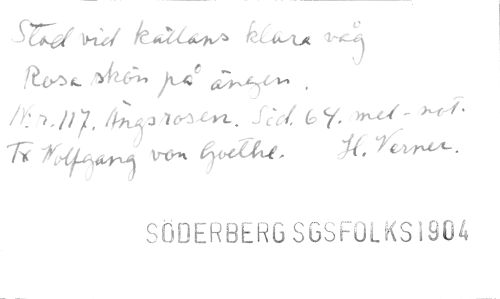 Stod vid källans klara våg
Rosa skön på ängen.
N:r. 117. Ängsrosen. Sid. 64. mel-not.
Tx Wolfgang von Goethe. H. Verner.
SÖDERBERG SGSFOLKS1904